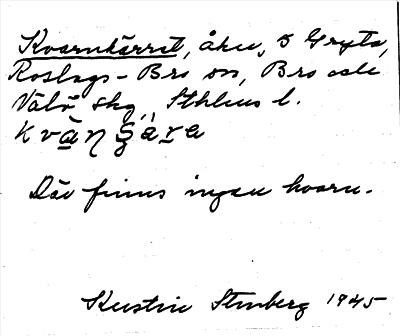 Kvarnkärret, åker, 5 Gryta,
Roslags-Bro sn, Bro och
Vätö skg, Sthlms l.
kvàṇʂä́ra
Där finns ingen kvarn.
Kerstin Stenberg 1945